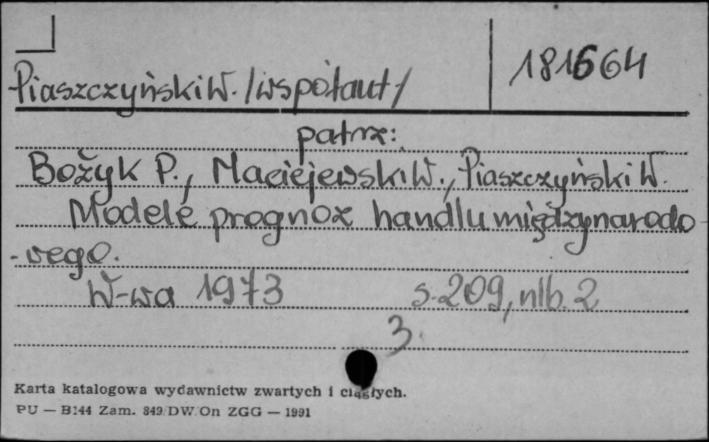 Piaszczyński W. /współaut/
181664
patrz:
Bożyk P., Maciejewski W., Piaszczyński W.
Modele prognoz handlu międzynarodo
-wego.
W-wa 1973 s. 209, nlb. 2
3.
Karta katalogowa wydawnictw zwartych i ciągłych.
PU — B144 Zam. 849/DW/On ZGG — 1991